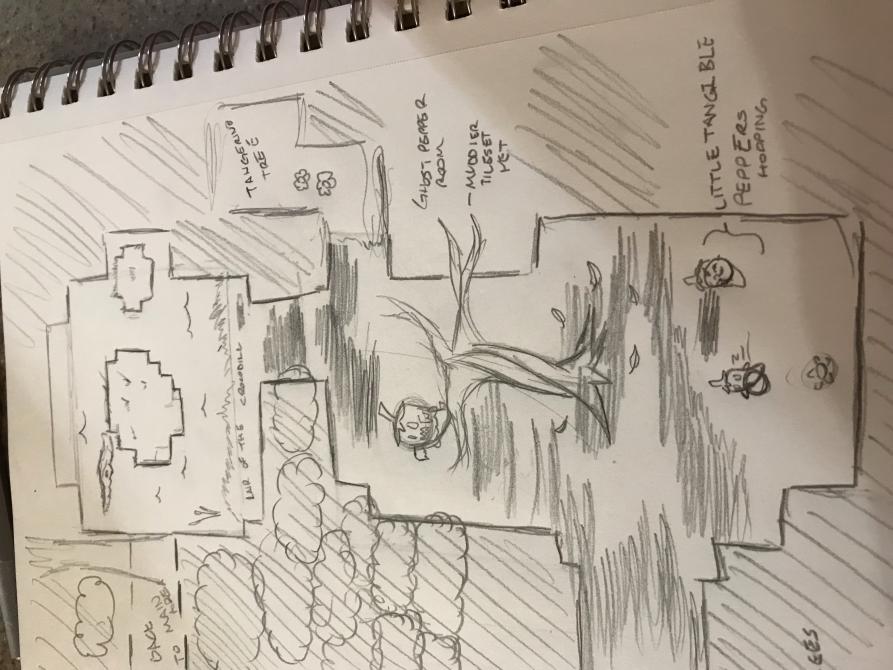 TANGERINE
TREE
GHOST PEPPER
ROOM
- MUDDIER
TILESET
YET
LITTLE TANGIBLE
PEPPERS
HOPPING
LAIR OF THE CROCODILL
BACK
TO